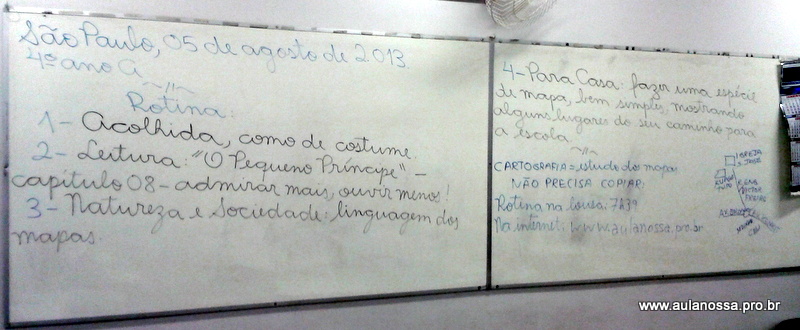 São Paulo, 05 de agosto de 2013.
4º ano A
Rotina:
1- Acolhida, como de costume.
2- Leitura: "O Pequeno Príncipe" -
capítulo 08 - admirar mais, ouvir menos!
3- Natureza e Sociedade: linguagem dos
mapas.
4- Para Casa: fazer uma espécie
de mapa, bem simples, mostrando
alguns lugares do seu caminho para
a escola
CARTOGRAFIA = estudo dos mapas
NÃO PRECISA COPIAR:
Rotina na lousa: 7h39
Na internet: www.aulanossa.pro.br
IGREJA
S. JOSÉ
www.aulanossa.pro.br